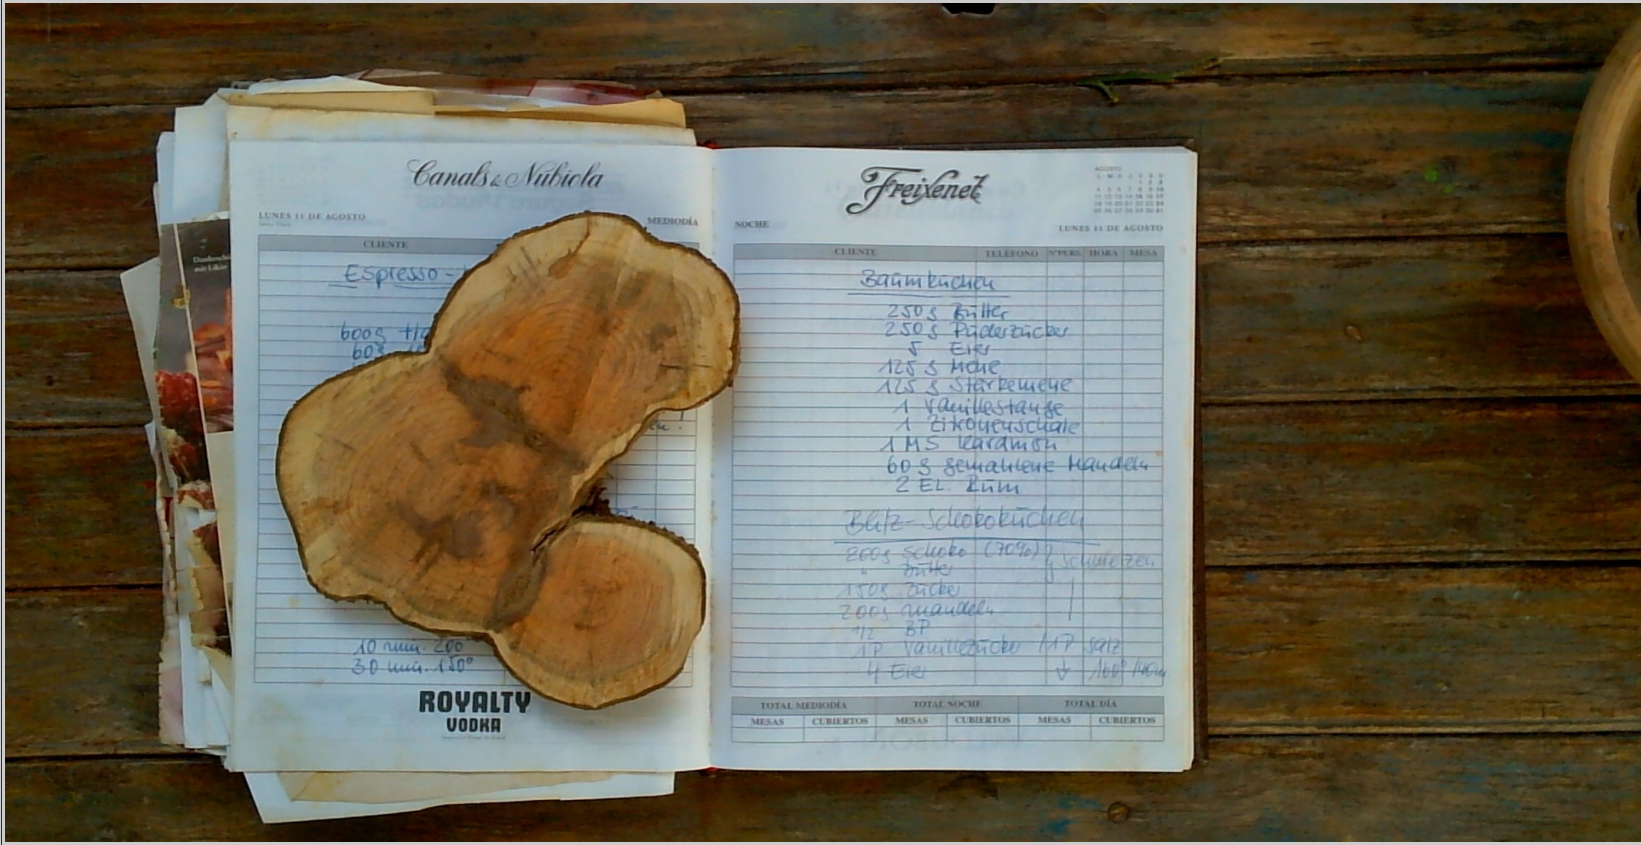 Canals & Nubiola
LUNES 11 DE AGOSTO
MEDIODÍA
CLIENTE
Espresso -
600g
60g
10 min. 200°
30 min. 150°
ROYALTY
VODKA
Dankeschön
mit Likör
Freixenet
AGOSTO
NOCHE
LUNES 11 DE AGOSTO
CLIENTE TELÉFONO NºPERS. HORA MESA
Baumkuchen
250 g Butter
250 g Puderzucker
5 Eier
125 g Mehl
125 g Stärkemehl
1 Vanillestange
1 Zitronenschale
1 MS Kardmon
60 g gemahlene Mandeln
2 EL. Rum
Blitz-Schokokuchen
200g Schoko (70%) } schmelzen
" Butter
150g Zucker
200g Mandeln
1/2 BP
1P Vanillezucker /1P Salz
4 Eier ↓ 160° /40m
TOTAL MEDIODÍA TOTAL NOCHE TOTAL DÍA
MESAS CUBIERTOS MESAS CUBIERTOS MESAS CUBIERTOS